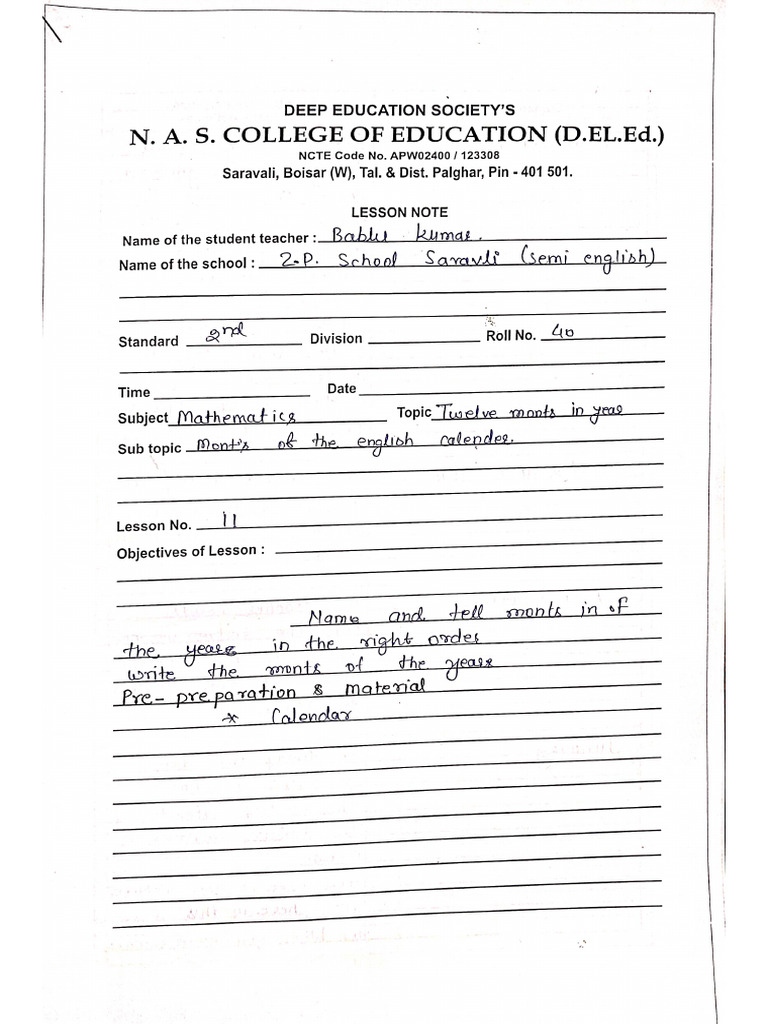 DEEP EDUCATION SOCIETY'S
N. A. S. COLLEGE OF EDUCATION (D.EL.Ed.)
NCTE Code No. APW02400 / 123308
Saravali, Boisar (W), Tal. & Dist. Palghar, Pin - 401 501.
LESSON NOTE
Name of the student teacher : Bablu Kumar.
Name of the school : Z.P. School Saravli (semi english)
Standard 2nd Division Roll No. 40
Time Date
Subject Mathematics Topic Twelve monts in year
Sub topic Mont's of the english calender.
Lesson No. 11
Objectives of Lesson :
Name and tell monts in of
the years in the right order
write the monts of the years
Pre-preparation & material
* Calendar